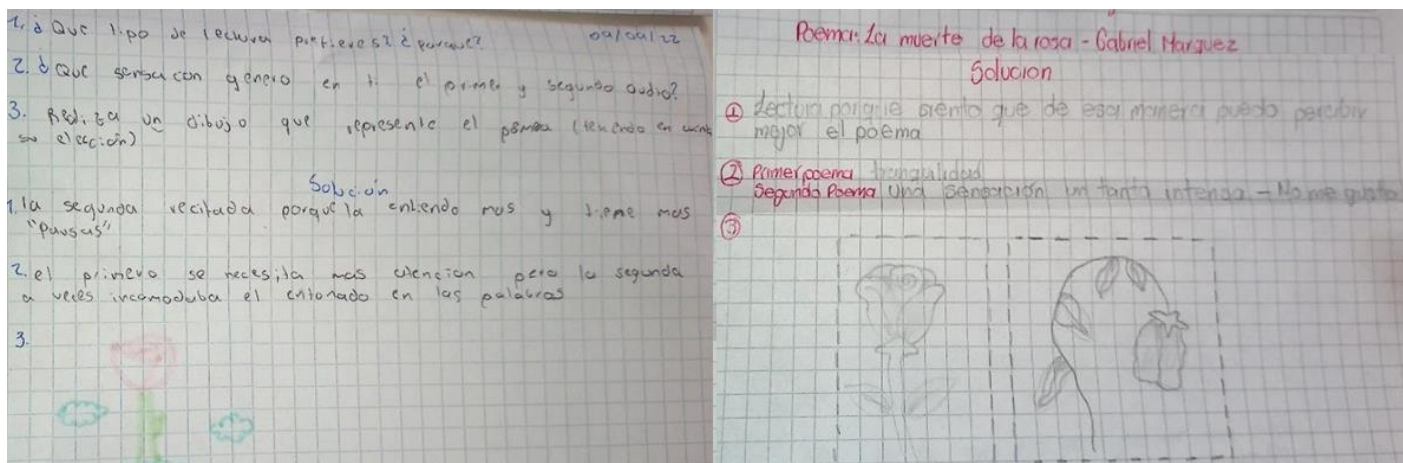 1. ¿Que tipo de lectura prefieres? ¿ porque? 04/04/22
2. ¿Que sensacon genero en ti el primer y segundo audio?
3. Realiza un dibujo que represente el poema (teniendo en cuenta
su elección)
Solución
1. la segunda recitada porque la entiendo mas y tiene mas
"pausas"
2. el primero se necesita mas atencion pero la segunda
a veces incomodaba el entonado en las palabras
3.
Poema: La muerte de la rosa - Gabriel Marquez
Solucion
① Lectura porque siento que de esa manera puedo percibir
mejor el poema
② Primer poema tranquilidad
Segundo Poema Una sensación un tanto intensa - No me gusto
③